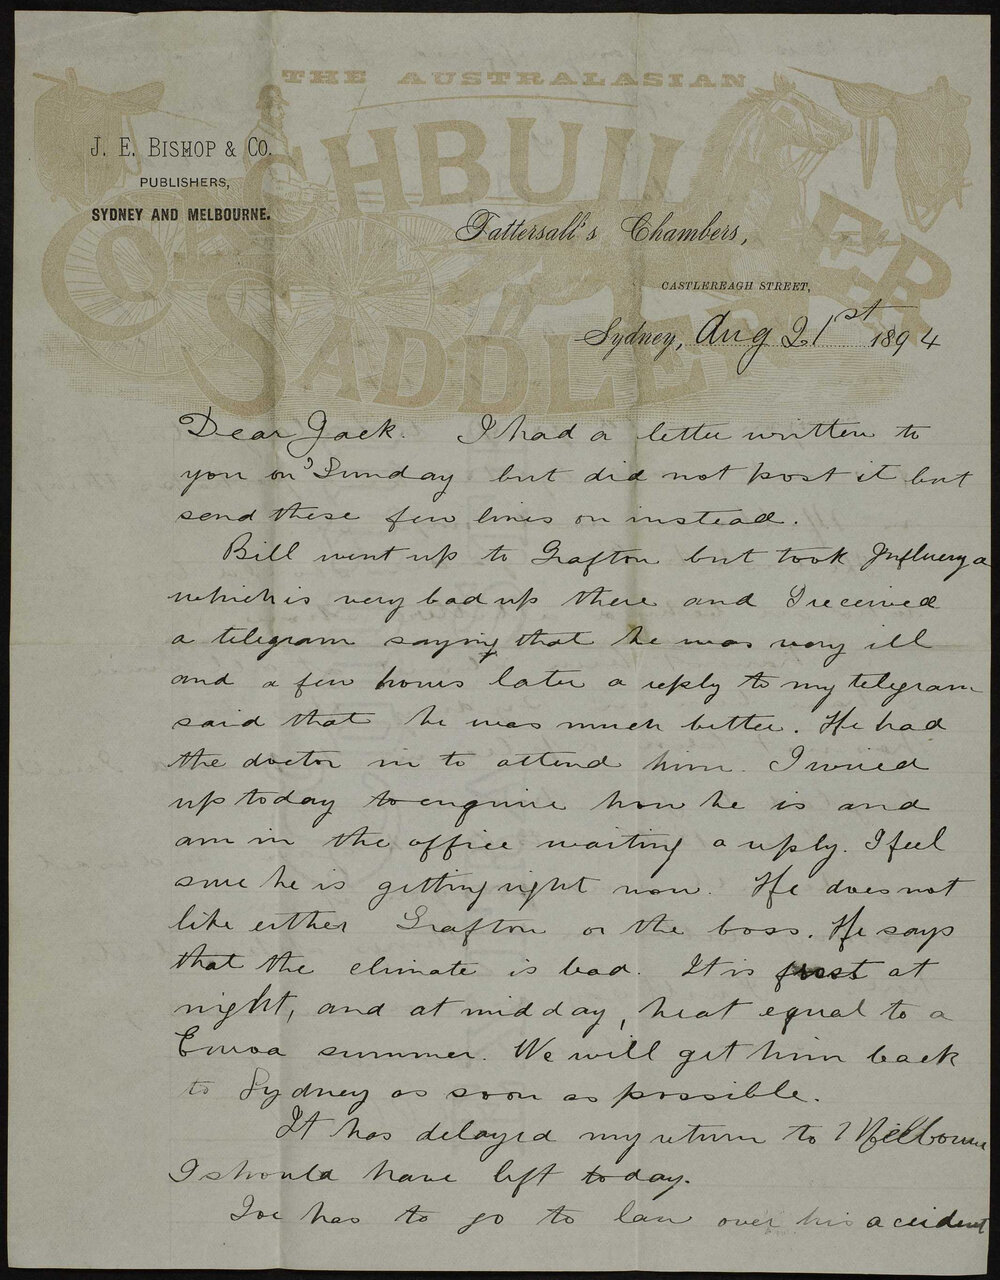 THE AUSTRALASIAN
COACHBUILDER
SADDLER
J. E. BISHOP & CO.
PUBLISHERS,
SYDNEY AND MELBOURNE.
Tattersall's Chambers,
CASTLEREAGH STREET,
Sydney, Aug 21st 1894
Dear Jack. I had a letter written to
you on Sunday but did not post it but
send these few lines on instead.
Bill went up to Grafton but took Influenza
which is very bad up there and I received
a telegram saying that he was very ill
and a few hours later a reply to my telegram
said that he was much better. He had
the doctor in to attend him. I wired
up today to enquire how he is and
am in the office waiting a reply. I feel
sure he is getting right now. He does not
like either Grafton or the boss. He says
that the climate is bad. It is frost at
night, and at mid day, heat equal to a
Euroa summer. We will get him back
to Sydney as soon as possible.
It has delayed my return to Melbourne
I should have left today.
Joe has to go to law over his accident